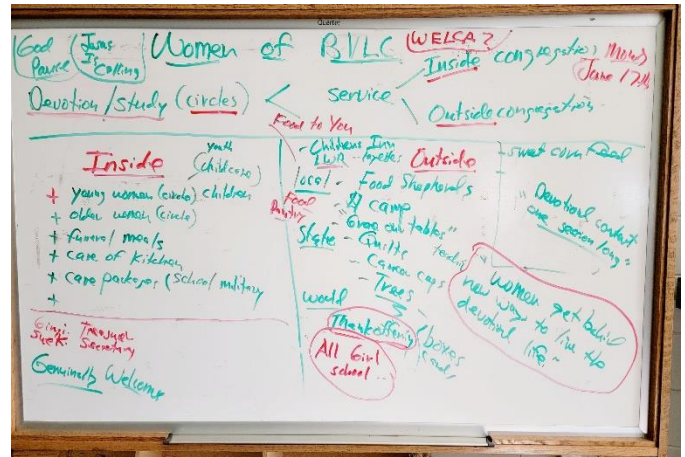 Quartet
God Pause
Jesus Is Calling
Women of BVLC (WELCA?)
Inside congregation
June 17th
Devotion/Study (circles) < Service
Outside congregation
Inside
youth
(childcare)
+ young women (circle) children
+ older women (circle)
+ funeral meals
+ care of Kitchen
+ care packages (school military
+
Treasurer
Secretary
Genuinely Welcome
Food to You
- Childrens Inn
LWR - together
Outside
local - Food Shepherds
Food Pantry
camp
State - Quilts
- Cancer caps
- Trees
world
Thankoffering
boxes
All Girl school...
- sweet corn Feed
"Devotional content
one season long"
"women get behind
new ways to live the
devotional life."